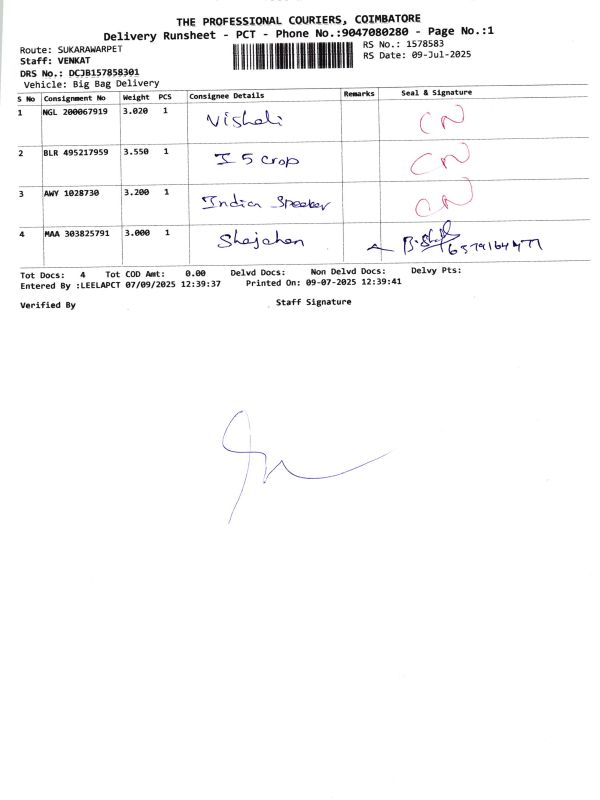 THE PROFESSIONAL COURIERS, COIMBATORE
Delivery Runsheet - PCT - Phone No.:9047080280 - Page No.:1
Route: SUKARAWARPET RS No.: 1578583
Staff: VENKAT RS Date: 09-Jul-2025
DRS No.: DCJB157858301
Vehicle: Big Bag Delivery
S No Consignment No Weight PCS Consignee Details Remarks Seal & Signature
1 NGL 200067919 3.020 1 Vishali CN
2 BLR 495217959 3.550 1 I 5 crop CN
3 AWY 1028730 3.200 1 Indian Speaker CN
4 MAA 303825791 3.000 1 Shajahan
Tot Docs: 4 Tot COD Amt: 0.00 Delvd Docs: Non Delvd Docs: Delvy Pts:
Entered By :LEELAPCT 07/09/2025 12:39:37 Printed On: 09-07-2025 12:39:41
Verified By Staff Signature